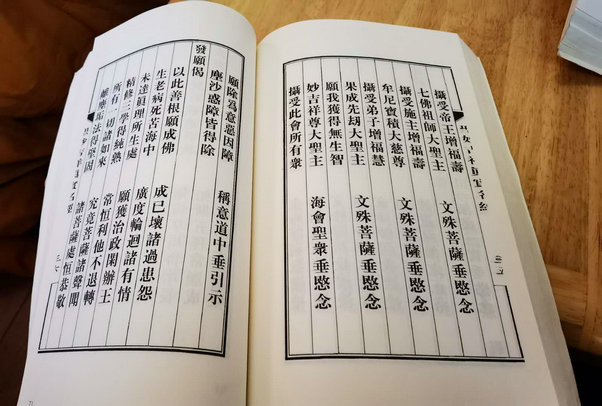 攝受帝王增福壽 文殊菩薩垂愍念
七佛祖師大聖主
攝受施主增福壽 文殊菩薩垂愍念
牟尼寶積大慈尊
攝受弟子增福慧 文殊菩薩垂愍念
果成先劫大聖主
願我獲得無生智 海會聖衆垂愍念
妙吉祥尊大聖主
攝受此會所有衆
願除為意惡因障 稱意道中垂引示
塵沙惑障皆得除
發願偈
以此善根願成佛 成已壞諸過患怨
生老病死苦海中 廣度輪迴諸有情
未達眞理所生處 願獲治政閑辦士
精修三學得純熟 常恆利他不退轉
所有一切諸如來 究竟菩薩諸聲聞
離塵垢法得堅固 諸菩薩處恒恭敬